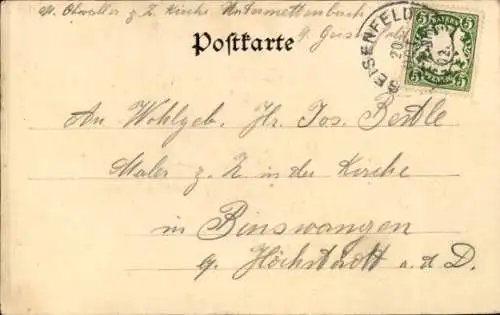 z. Z. Kirche Untermettenbach
Postkarte
EISENFELD
BAYERN
5 5
PFENNIG
An Wohlgeb. Hr. Jos. Bestle
Maler z. Z. in der Kirche
in Binswangen
p. Höchstädt a. d. D.